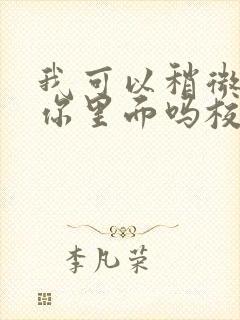 我可以稍微
你里而吗板
李凡荣